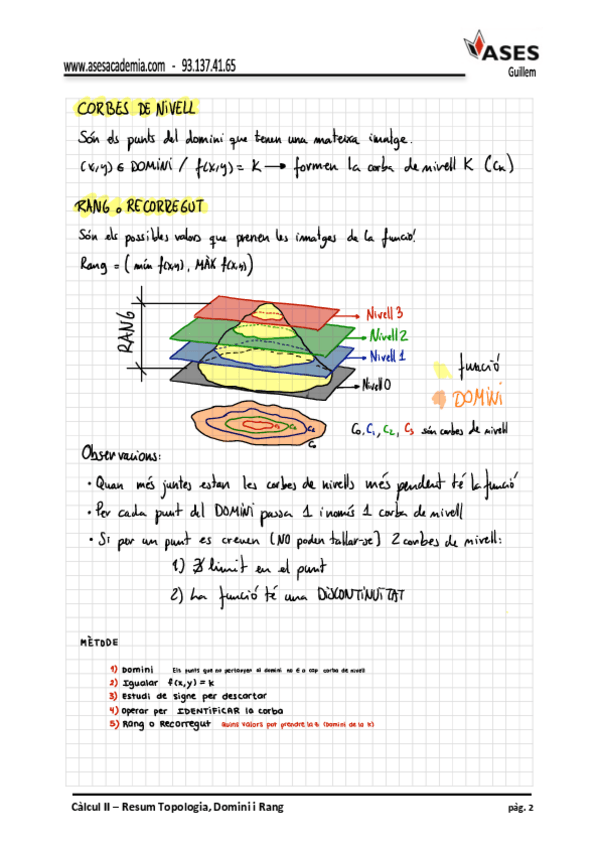 ASES
www.asesacademia.com - 93.137.41.65
Guillem
CORBES DE NIVELL
Són els punts del domini que tenen una mateixa imatge.
(x,y) ∈ DOMINI / f(x,y) = K → formen la corba de nivell K (Ck)
RANG o RECORREGUT
Són els possibles valors que prenen les imatges de la funció!
Rang = (mín f(x,y), MÀX f(x,y))
RANG
Nivell 3
Nivell 2
Nivell 1
Nivell 0
funció
DOMINI
C3 C2 C1
C0
C0, C1, C2, C3 són corbes de nivell
Observacions:
• Quan més juntes estan les corbes de nivells més pendent té la funció
• Per cada punt del DOMINI passa 1 i només 1 corba de nivell
• Si per un punt es creuen (NO poden tallar-se) 2 corbes de nivell:
1) ∄ límit en el punt
2) La funció té una DISCONTINUITAT
MÈTODE
1) Domini Els punts que no pertanyen al domini no è a cap corba de nivell
2) Igualar f(x,y) = k
3) Estudi de signe per descartar
4) Operar per IDENTIFICAR la corba
5) Rang o Recorregut Quins valors pot prendre la k (Domini de la K)
Càlcul II – Resum Topologia, Domini i Rang
pàg. 2